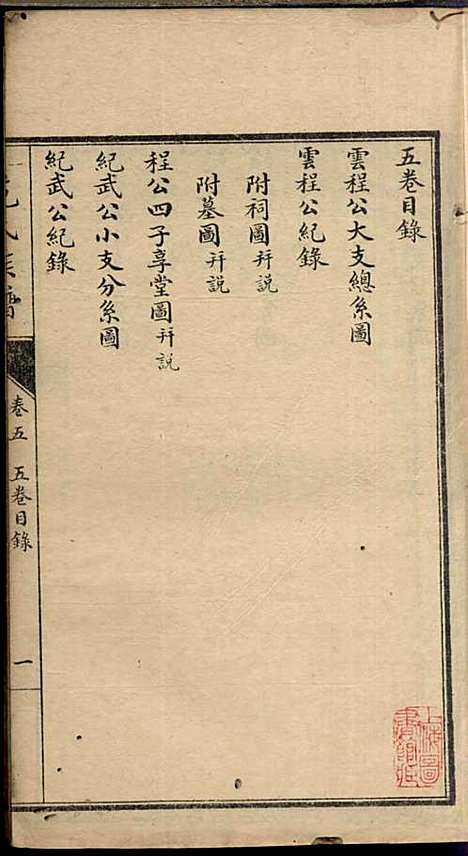 五卷目錄
雲程公大支總系圖
雲程公紀錄
附祠圖并説
附墓圖并説
程公四子享堂圖并説
紀武公小支分系圖
紀武公紀錄
氏族譜
卷五 五卷目錄 一
上海圖書館藏